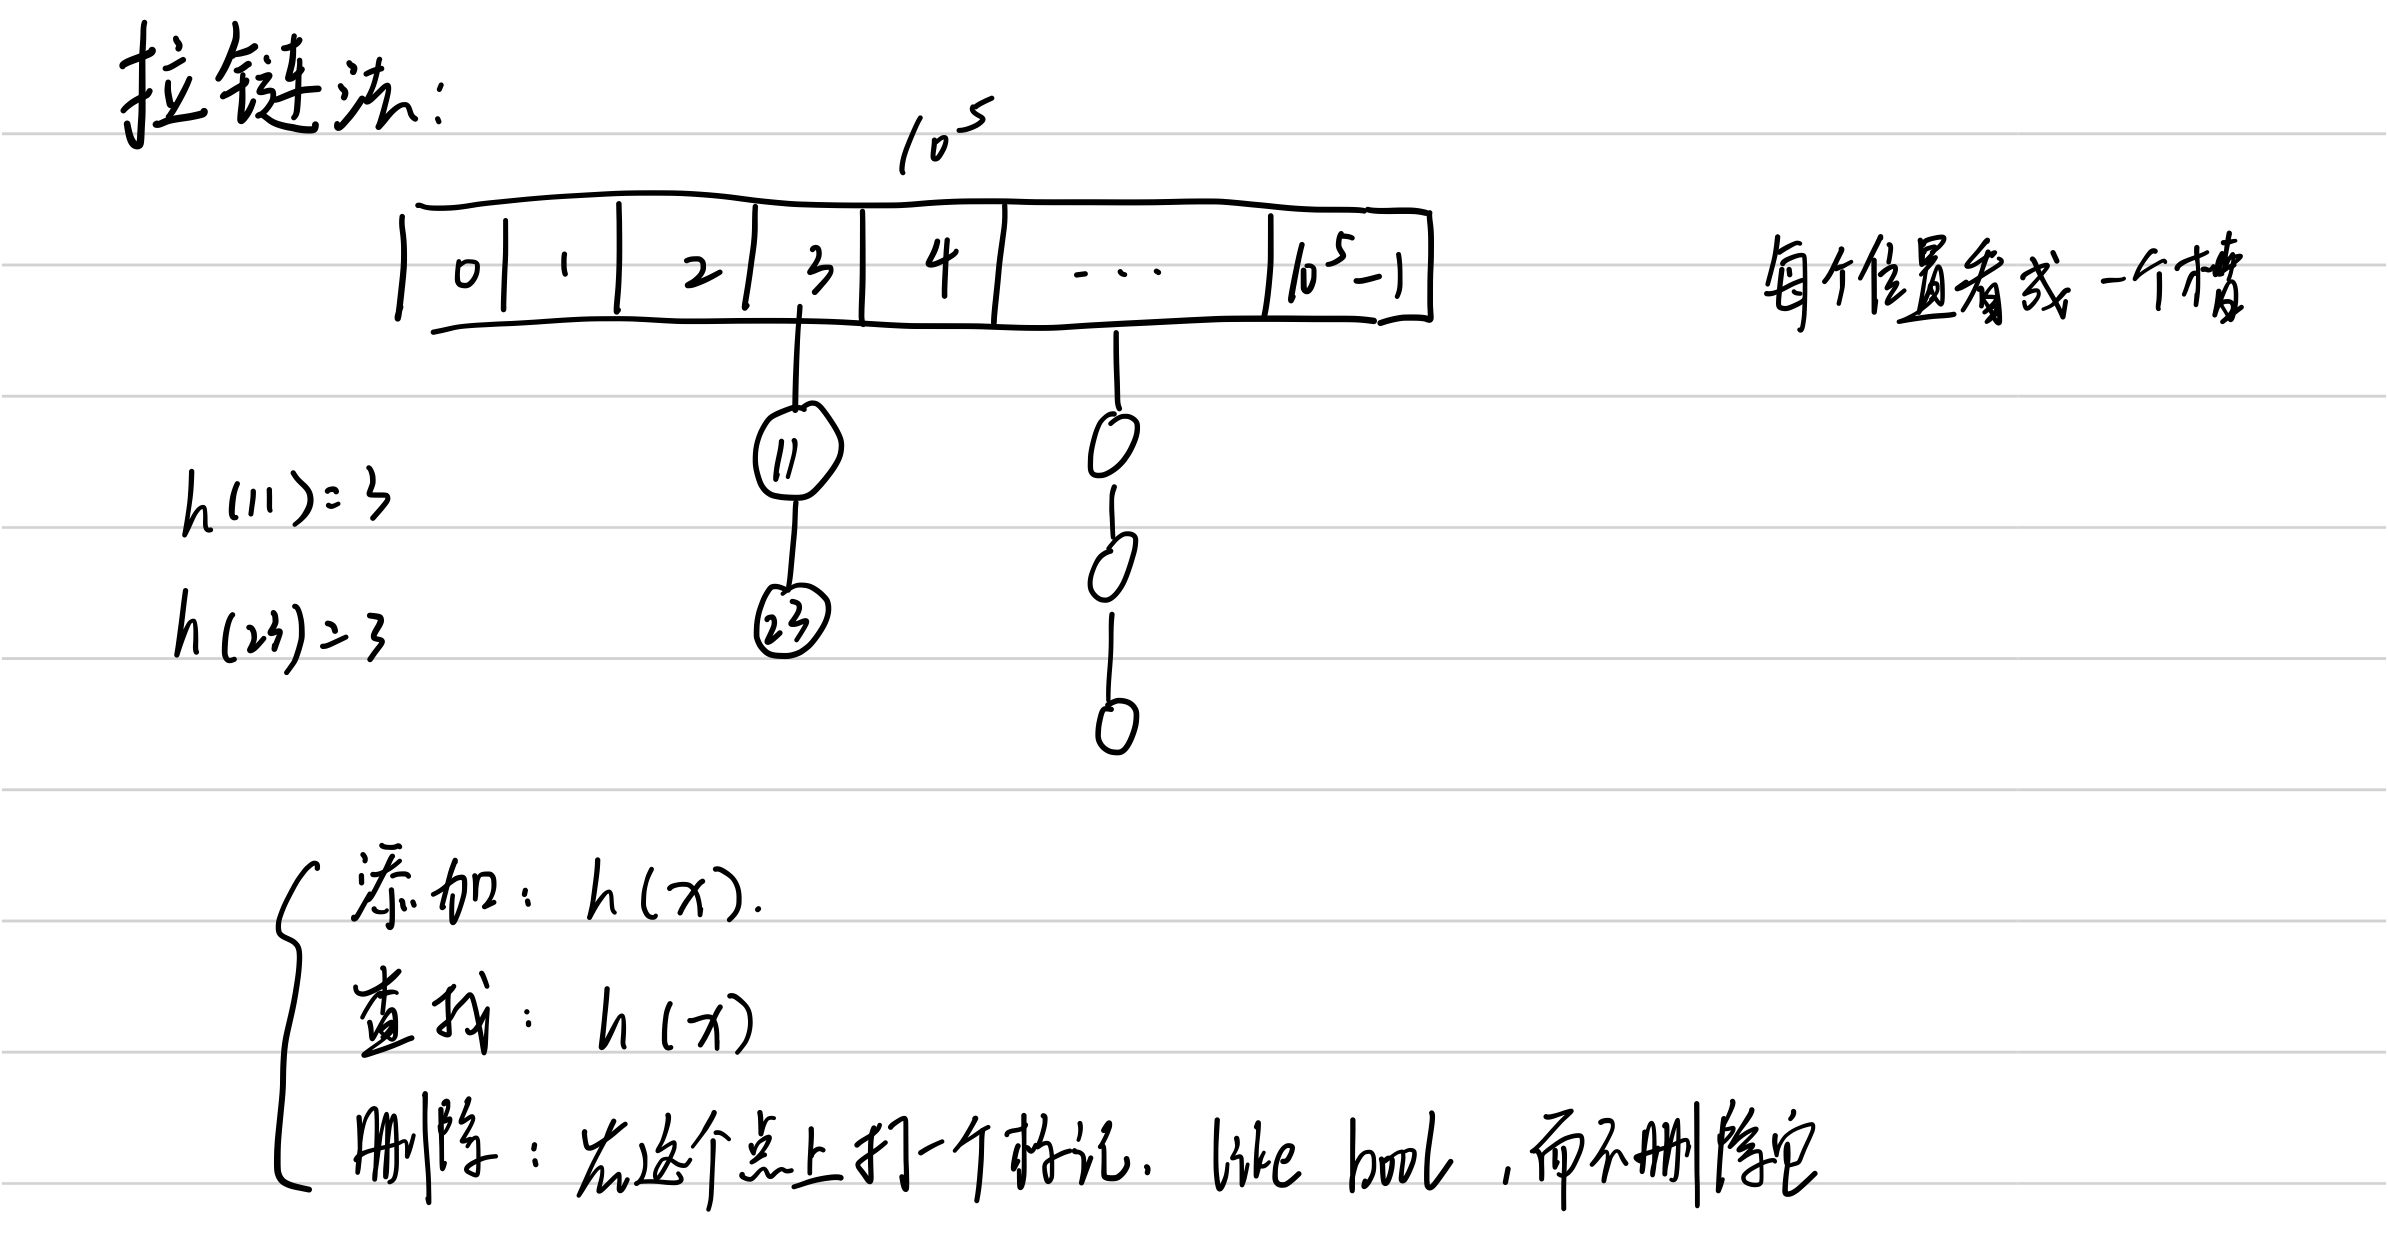 拉链法:
10^5
0 1 2 3 4 ... 10^5-1
每个位置看成一个槽
11
h(11)=3
23
h(23)=3
添加: h(x).
查找: h(x)
删除: 在这个点上打一个标记. like bool, 而不删除它